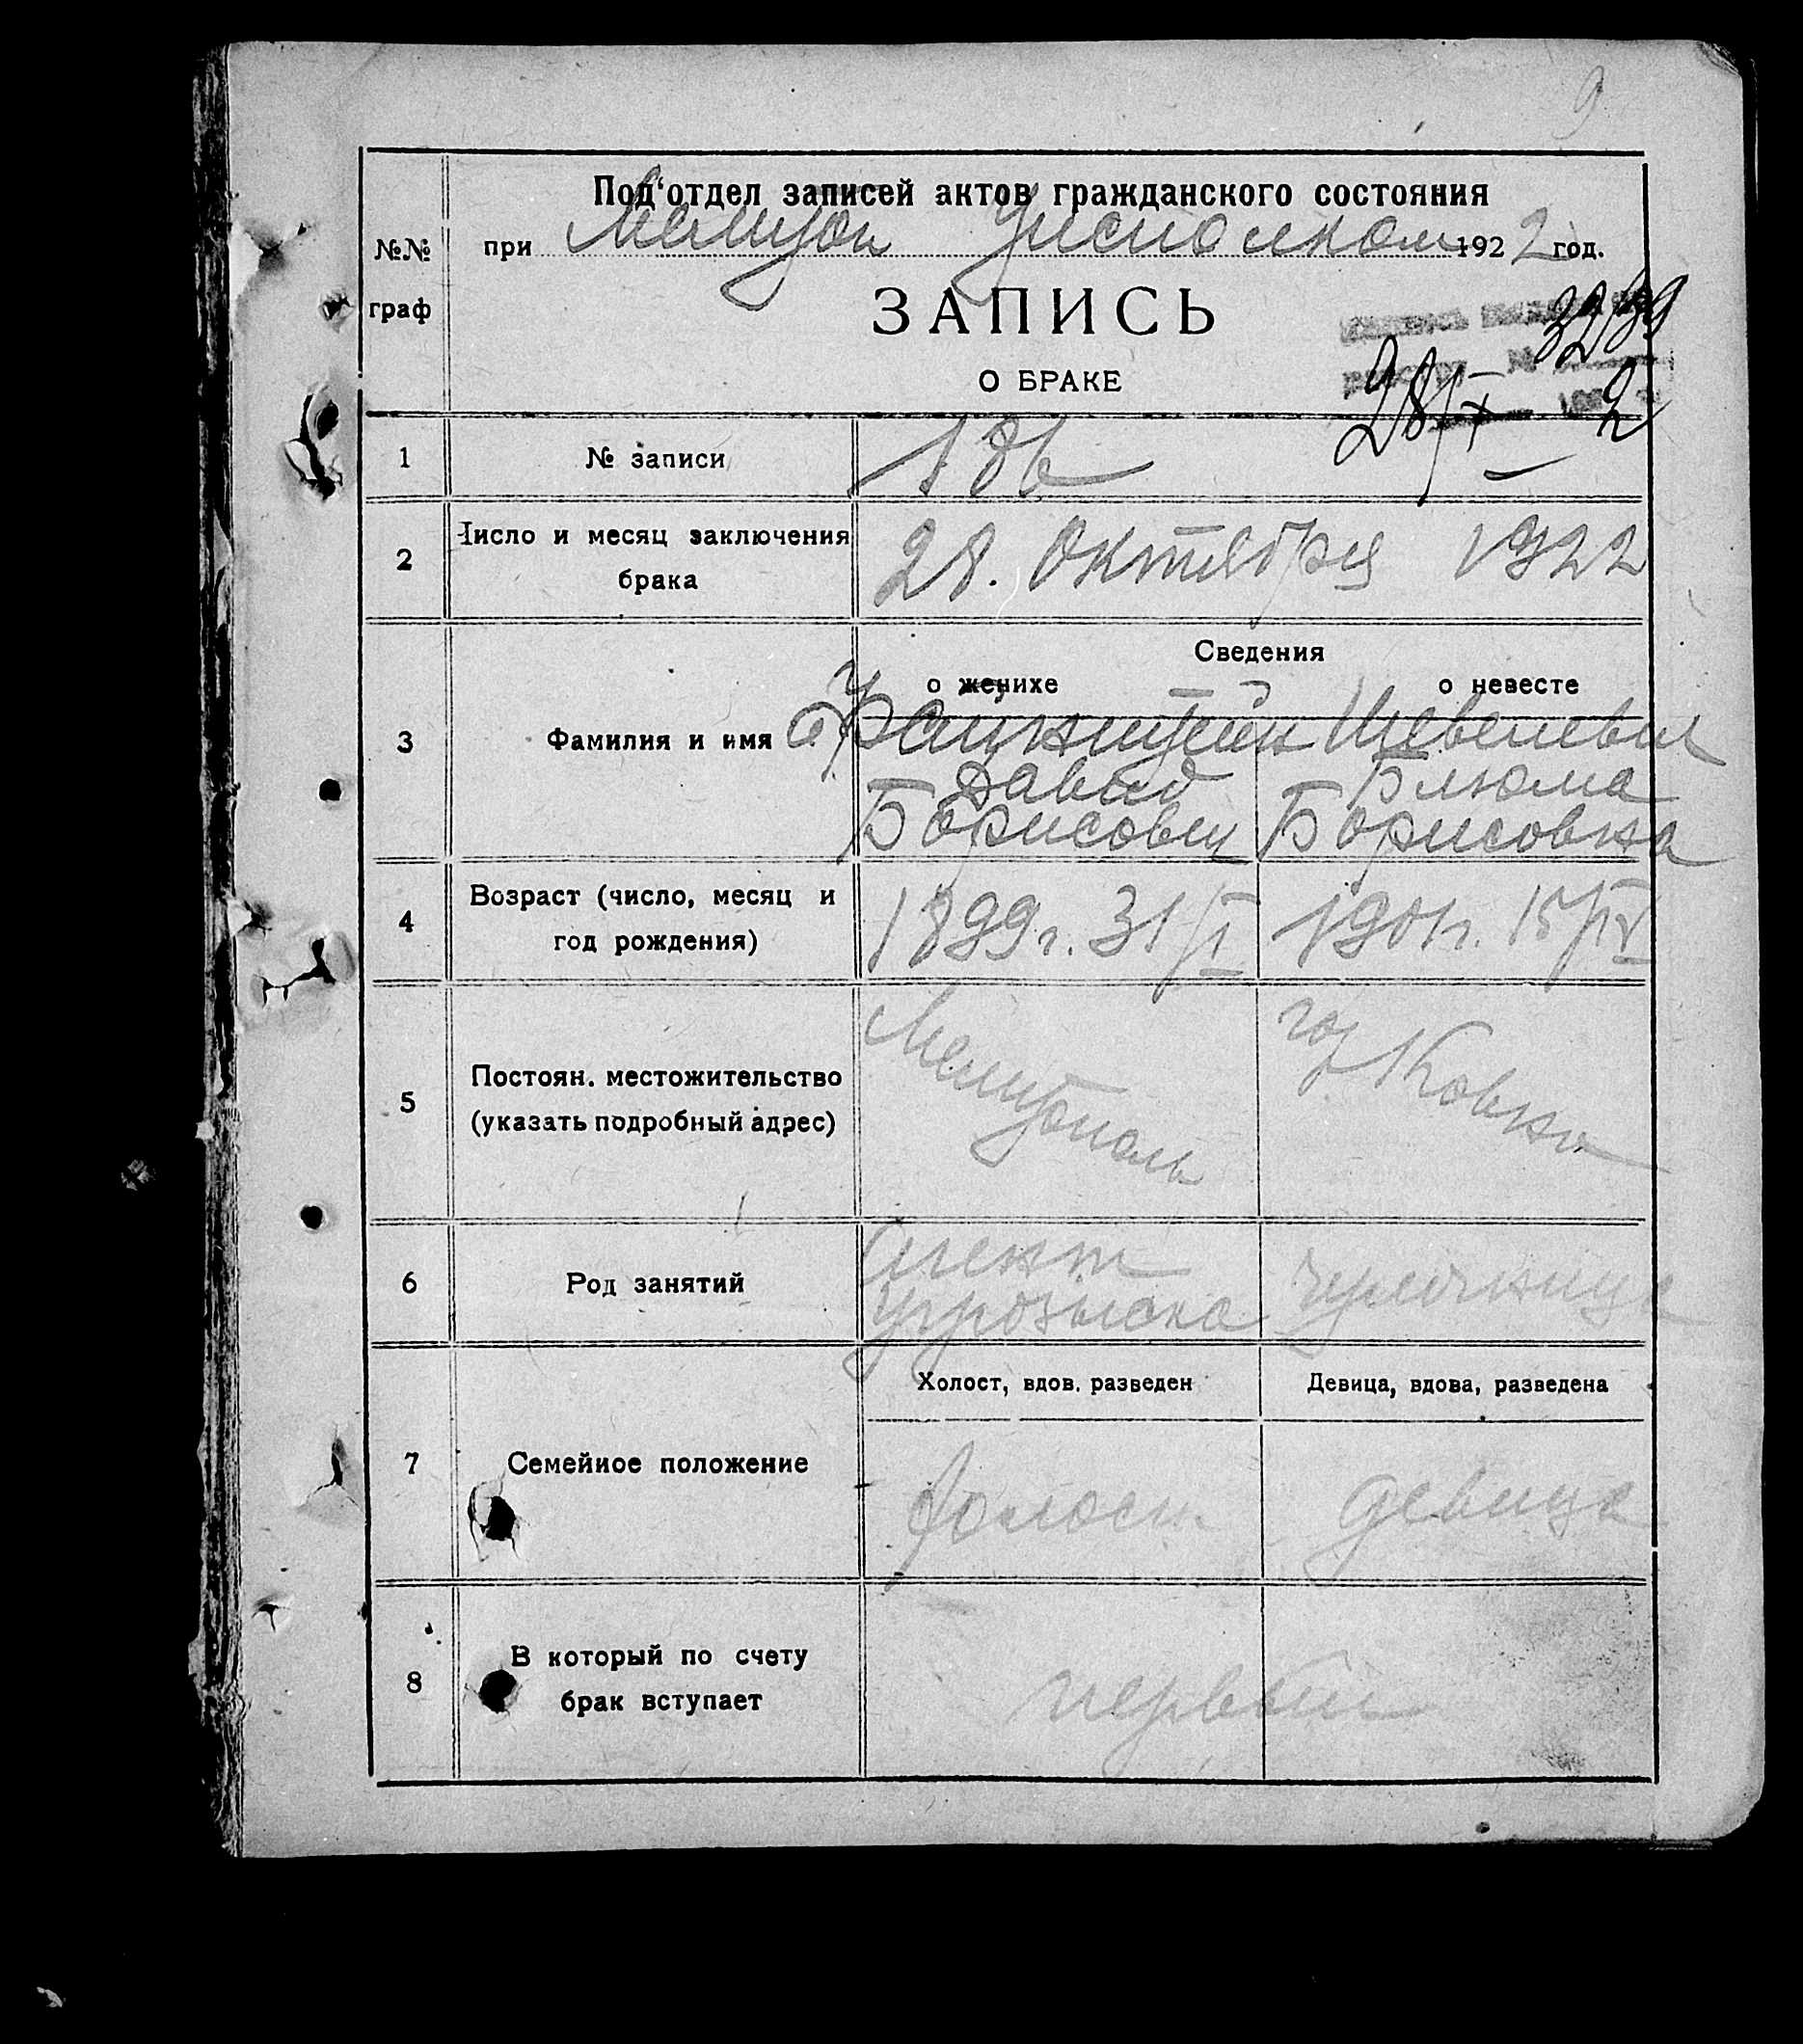 9
Под'отдел записей актов гражданского состояния
№№ граф
при Мелитоп Уисполком 1922 год.
ЗАПИСЬ
О БРАКЕ
3289
28/X 2
1 № записи 186
2 Число и месяц заключения брака 28. Октября 1922
Сведения
о женихе о невесте
3 Фамилия и имя
Давид Блюма
Борисович Борисовна
4 Возраст (число, месяц и год рождения) 1899 г. 31/I 1901 г. 15/IV
5 Постоян. местожительство (указать подробный адрес) Мелитополь гор Ковно
6 Род занятий агент угрозыска
Холост, вдов. разведен Девица, вдова, разведена
7 Семейное положение холост девица
8 В который по счету брак вступает первый